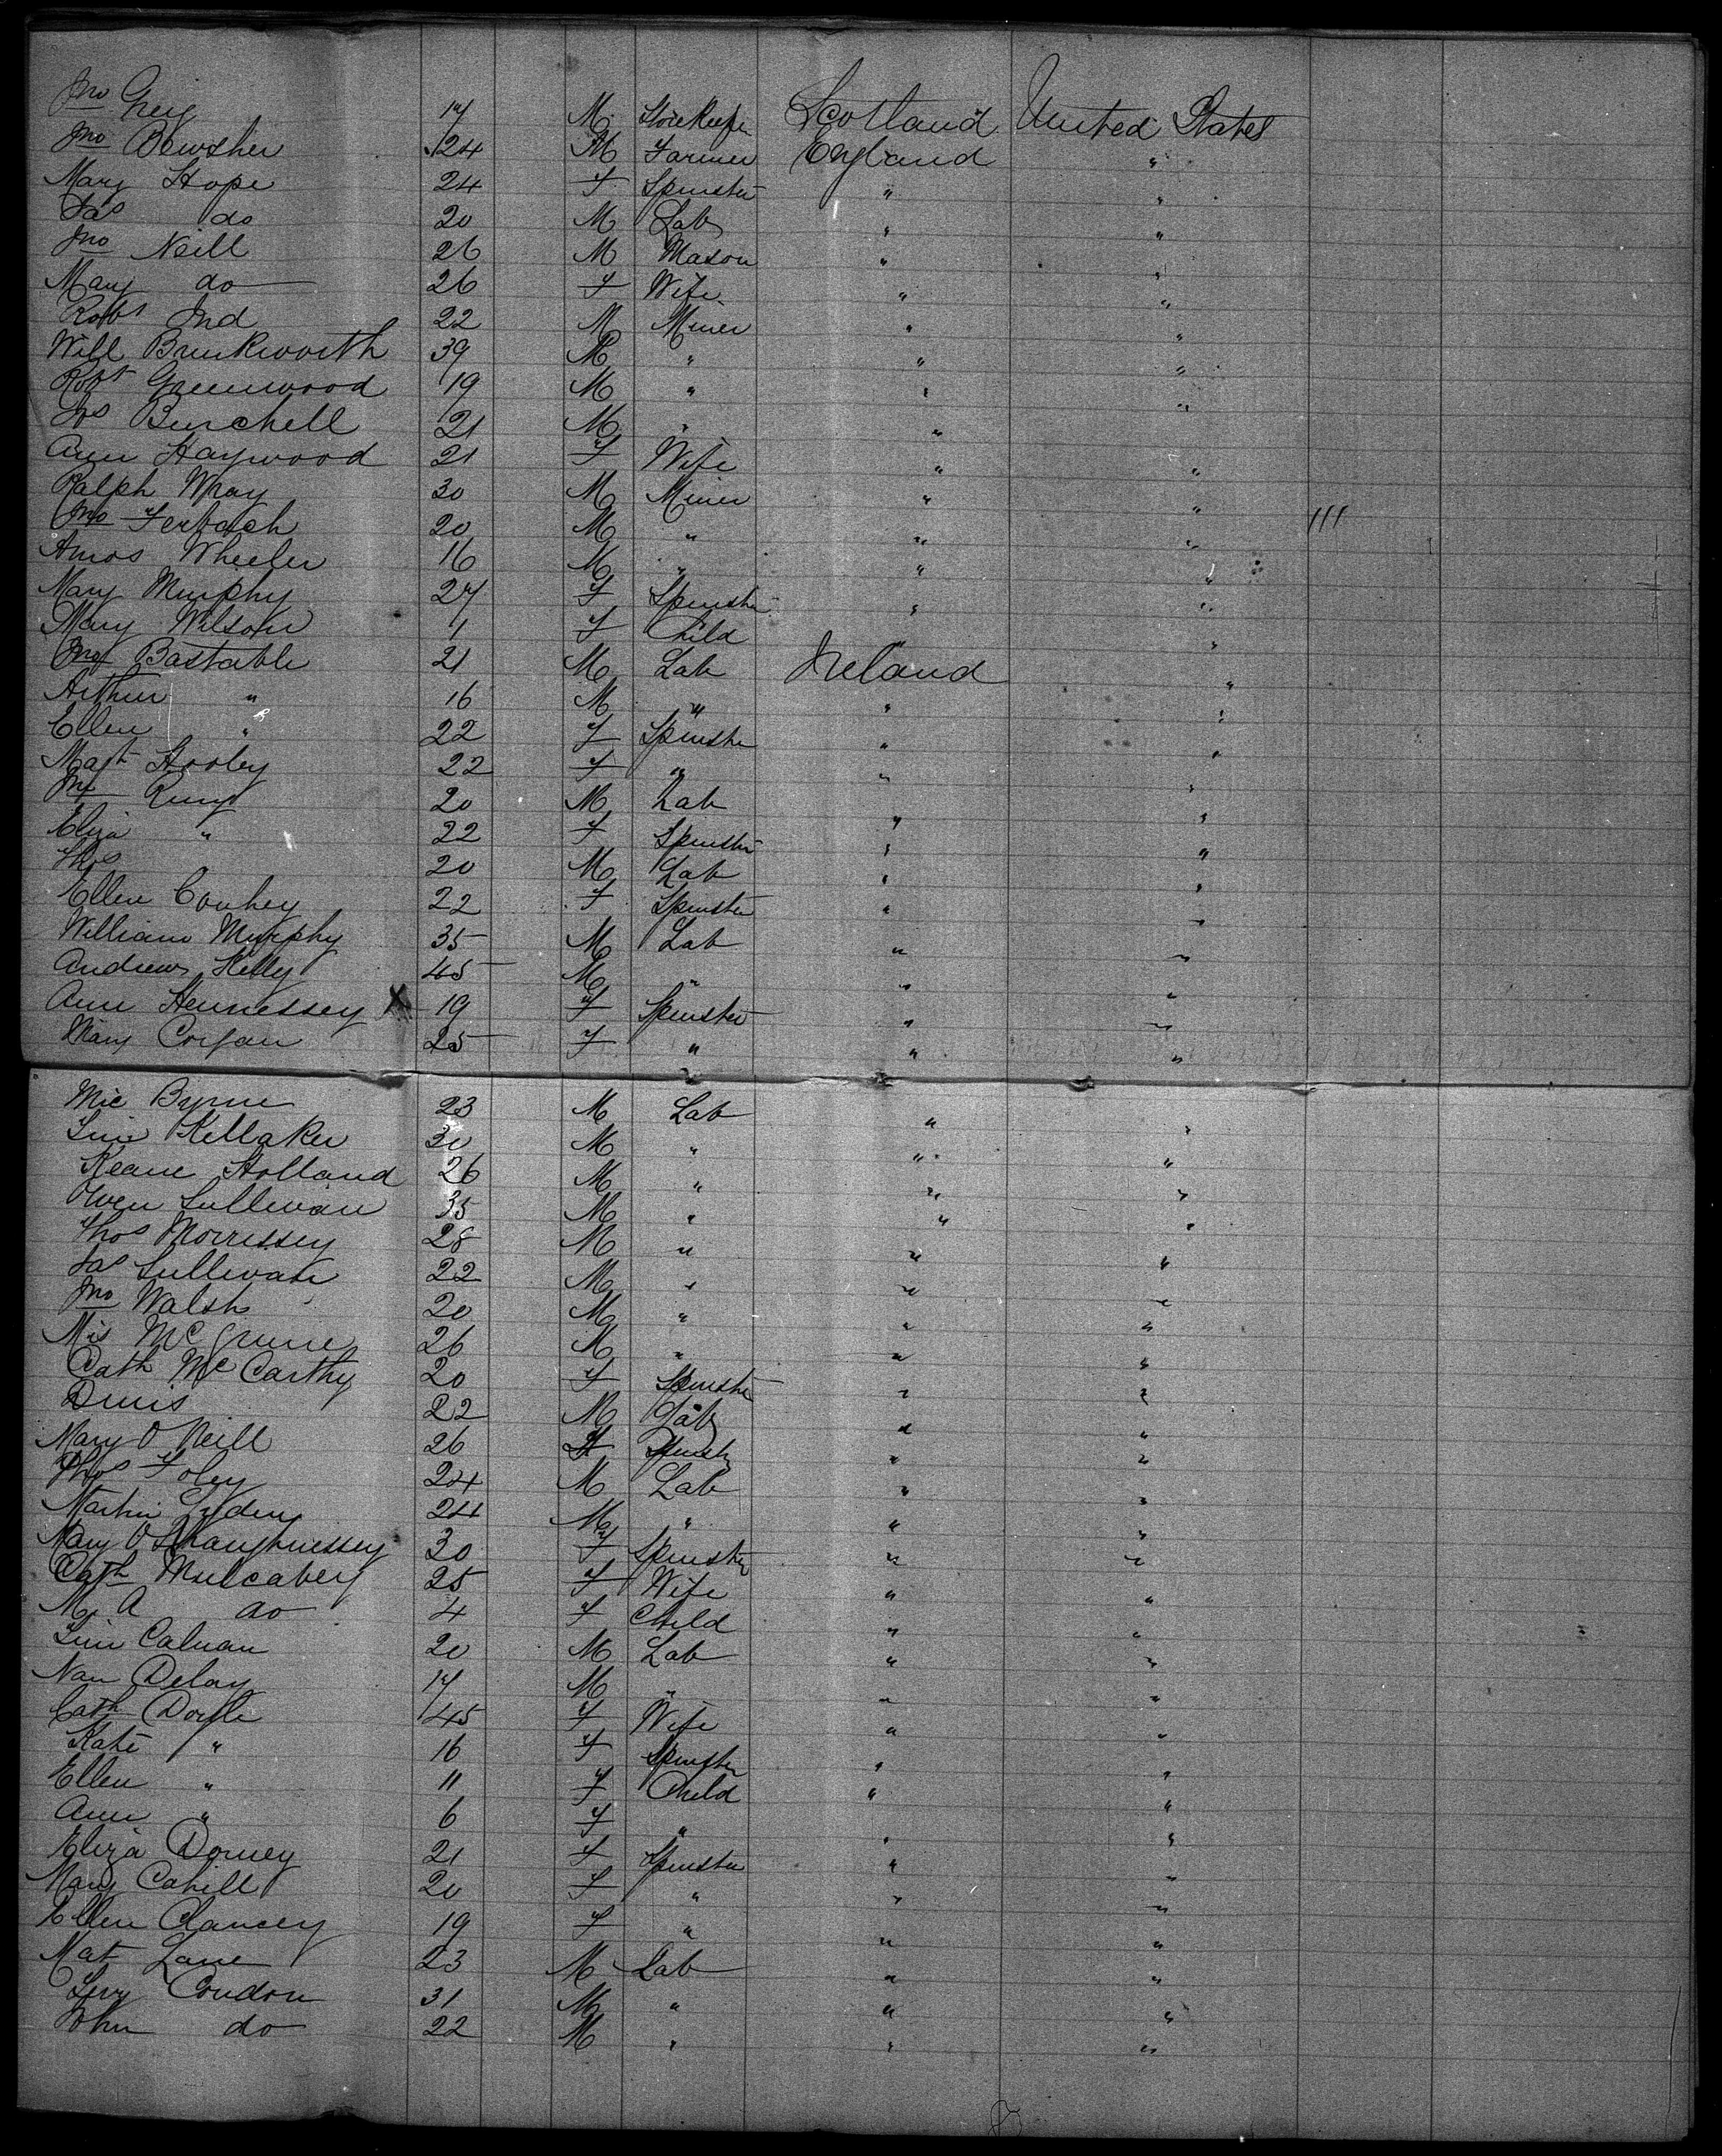 Jno Grey 17 M Storekeeper Scotland United States
Jno Bewsher 24 M Farmer England "
Mary Hope 24 F Spinster " "
Jas do 20 M Lab " "
Jno Neill 26 M Mason " "
Mary do 26 F Wife " "
Robt Ind 22 M Miner " "
Will Brinkworth 39 M " " "
Robt Greenwood 19 M " " "
Jos Burchell 21 M " " "
Ann Haywood 21 F Wife " "
Ralph May 30 M Miner " "
Jno 20 M " " " ///
Amos Wheeler 16 M " " "
Mary Murphy 27 F Spinster " "
Mary Wilson 1 F Child "
Jno Bastable 21 M Lab Ireland "
Arthur " 16 M " " "
Ellen " 22 F Spinster " "
Magt Hooley 22 F " " "
Jno Ring 20 M Lab " "
Eliza " 22 F Spinster " "
Thos 20 M Lab " "
Ellen Couhey 22 F Spinster " "
William Murphy 35 M Lab " "
Andrew Kelly 45 M " " "
Ann Hennessey X 19 F Spinster " "
Mary Corgan 25 F " " "
Mic Byrne 23 M Lab " "
Tim Kellaker 30 M " " "
Keane Holland 26 M " " "
Owen Sullivan 35 M " " "
Thos Morrissey 28 M " " "
Jas Sullivan 22 M " " "
Jno Walsh 20 M " " "
26 M " " "
Cath McCarthy 20 F Spinster " "
Denis 22 M Lab " "
Mary O Neill 26 F Spinster " "
Thos Foley 24 M Lab " "
Martin 24 M " " "
Mary O Shaughnessey 30 F Spinster " "
Cath Mulcahey 25 F Wife " "
M A do 4 F Child " "
Tim Calnan 20 M Lab " "
Delay 17 M " " "
Cath Doyle 45 F Wife " "
Kate " 16 F Spinster " "
Ellen " 11 F Child " "
Ann " 6 F " " "
Eliza Dorney 21 F Spinster " "
Mary Cahill 20 F " " "
Ellen Clancey 19 F " " "
Mat Lane 23 M Lab " "
Condon 31 M " " "
John do 22 M " " "